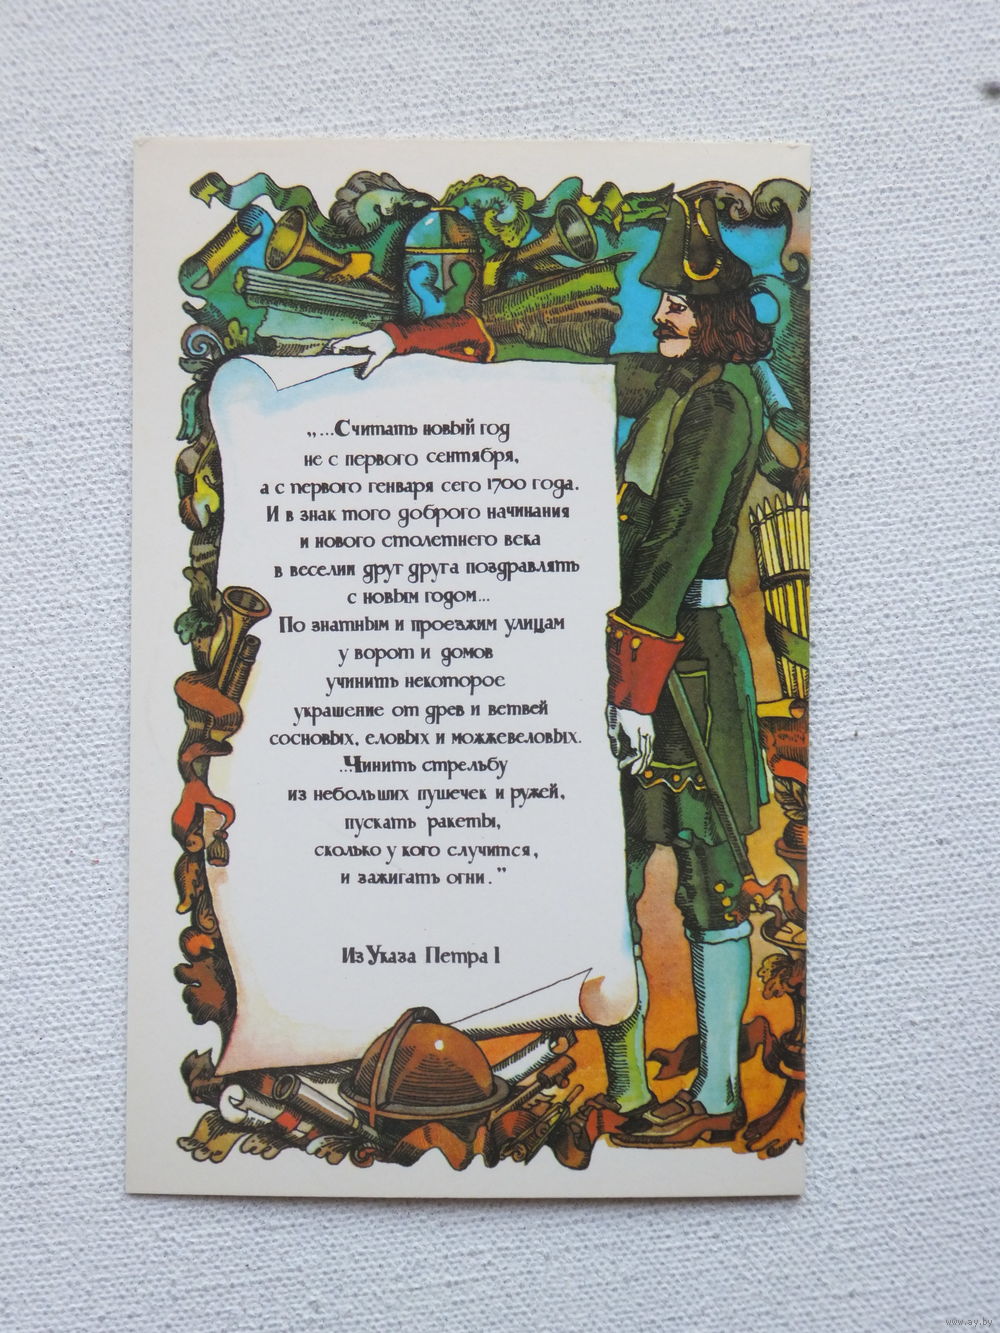 „...Считать новый год
не с первого сентября,
а с первого генваря сего 1700 года.
И в знак того доброго начинания
и нового столетнего века
в веселии друг друга поздравлять
с новым годом...
По знатным и проезжим улицам
у ворот и домов
учинить некоторое
украшение от древ и ветвей
сосновых, еловых и можжевеловых.
...Чинить стрельбу
из небольших пушечек и ружей,
пускать ракеты,
сколько у кого случится,
и зажигать огни."
Из Указа Петра I
www.ay.by